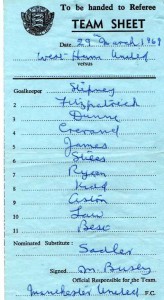 To be handed to Referee
TEAM SHEET
Date 29 March 1969
West Ham United
versus
Goalkeeper Stepney
2 Fitzpatrick
3 Dunne
4 Crerand
5 James
6 Stiles
7 Ryan
8 Kidd
9 Aston
10 Law
11 Best
Nominated Substitute: Sadler
Signed M. Busby
Official Responsible for the Team.
Manchester United F.C.